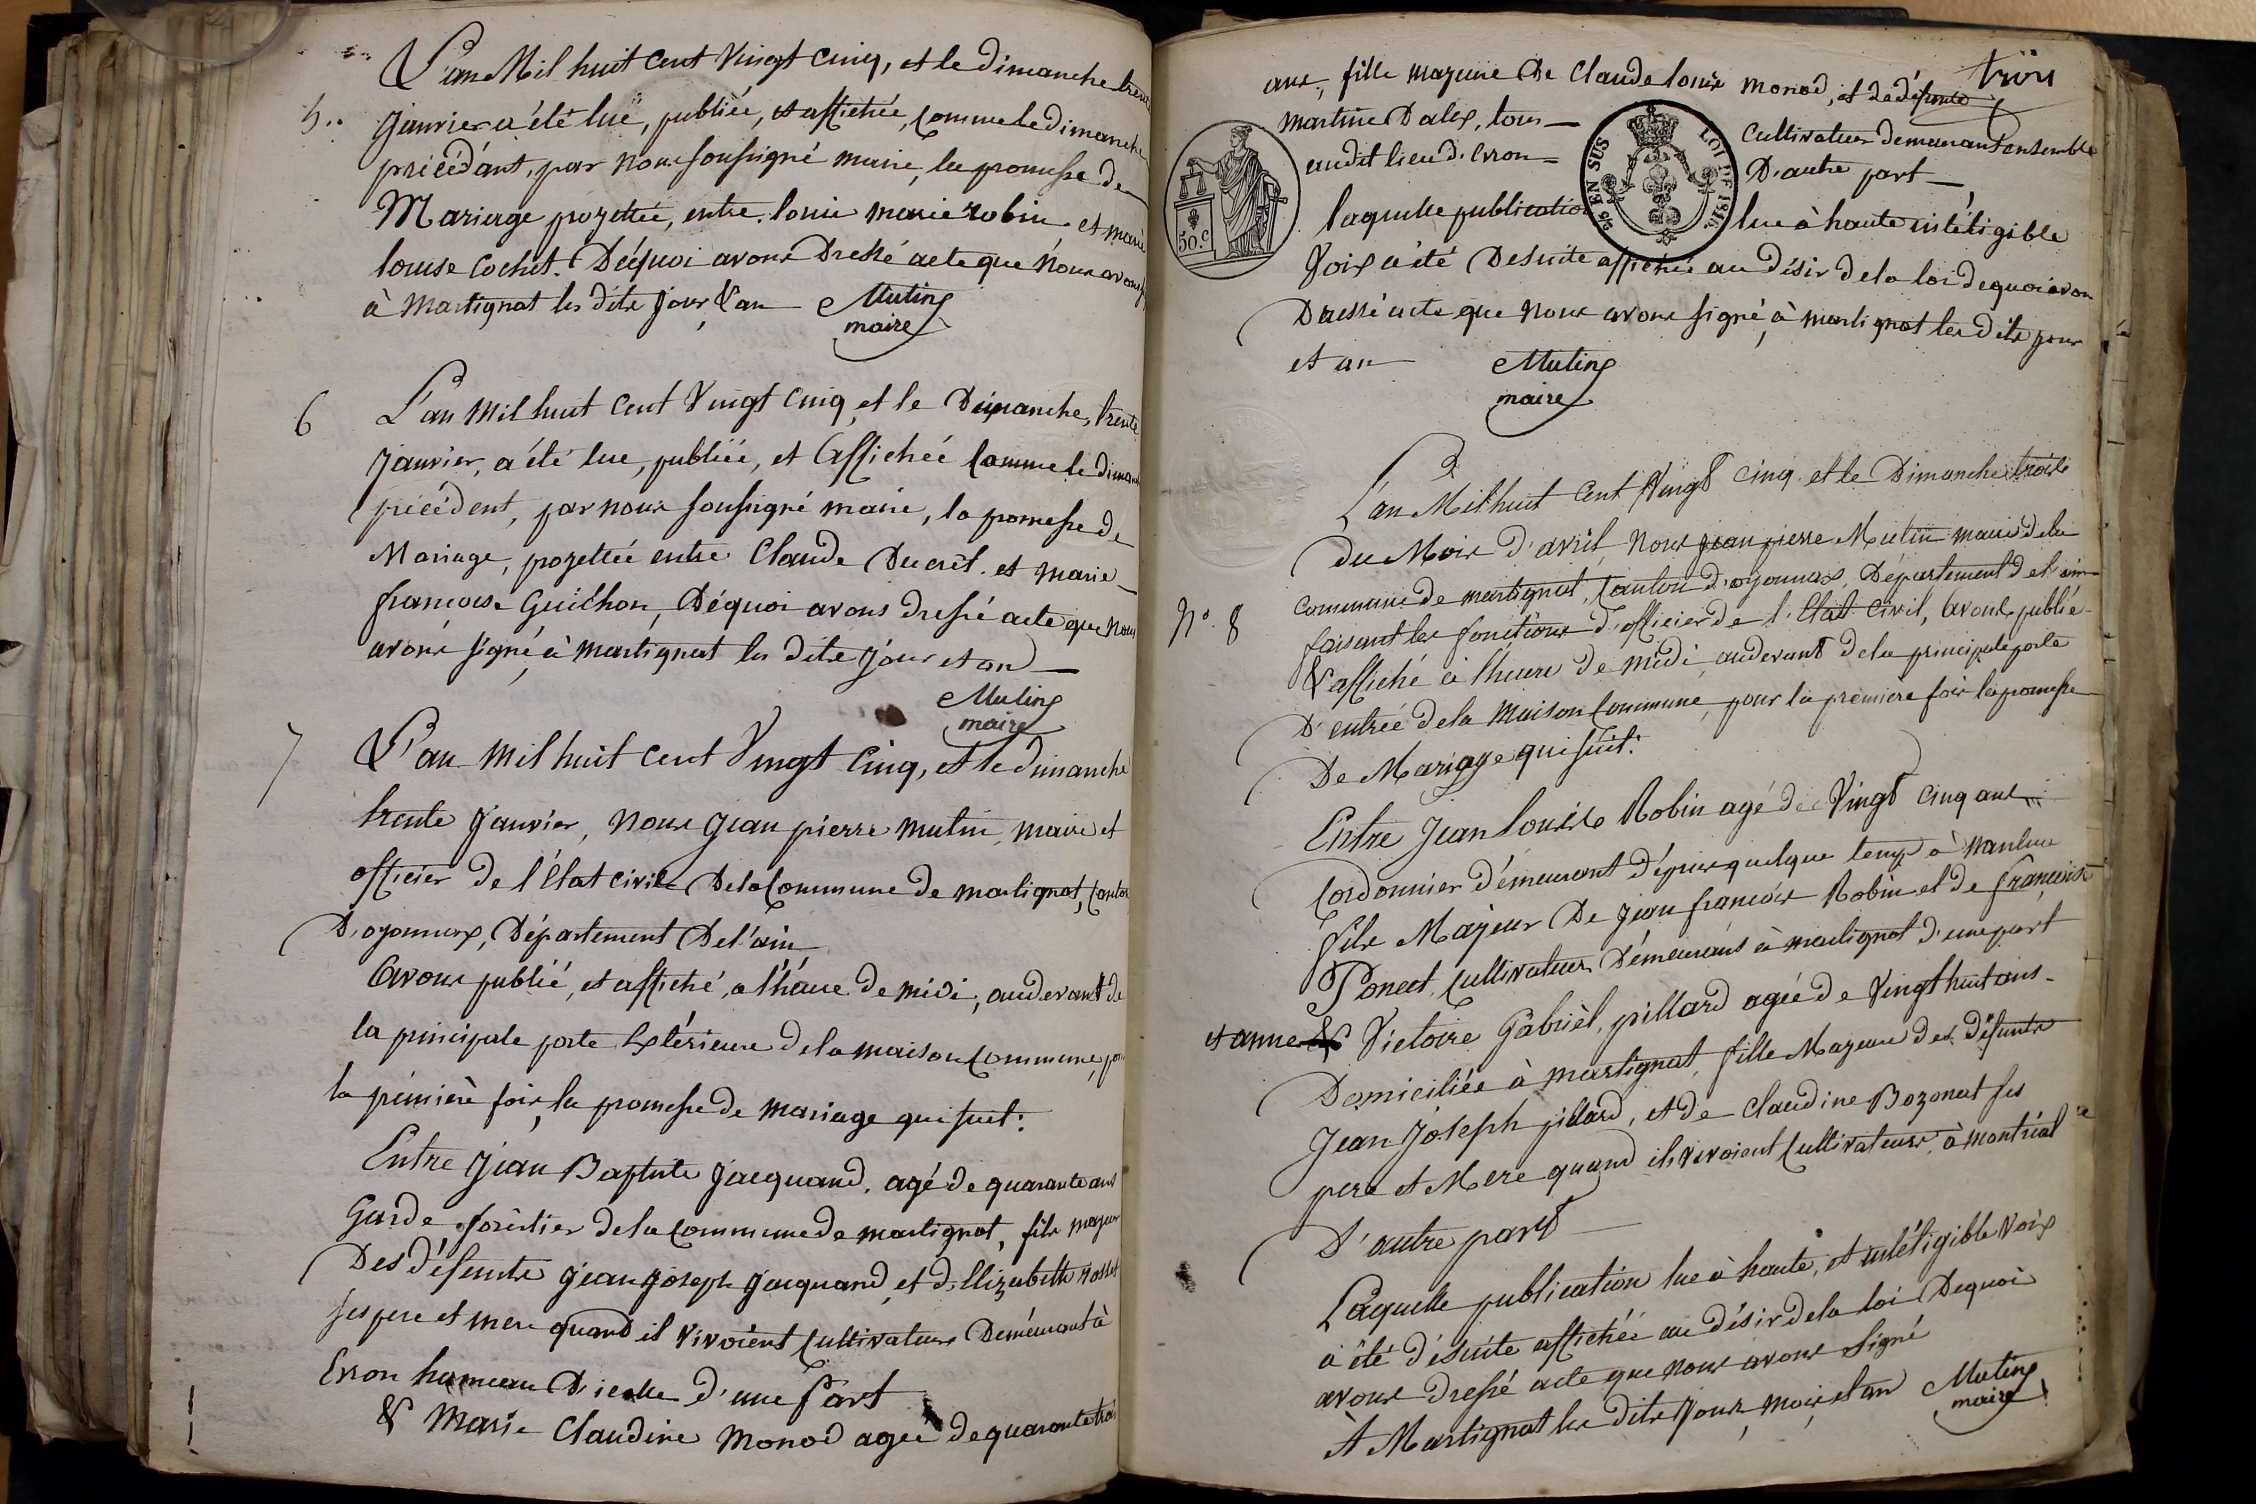 L'an Mil huit Cent Vingt Cinq, et le dimanche trente
5..
Janvier a été lue, publiée, et affichée, Comme le dimanche
précédant, par nous soussigné maire, la promesse de
Mariage projettée, entre Louis marie robin et marie
louise Cochet. Déquoi avons Dressé acte que Nous avons
à Martignat les dits jour & an Mutin
maire
6
L'an Mil huit Cent Vingt Cinq et le Dimanche, trente
Janvier, a été lue, publiée, et Affichée Comme le diman
précédent, par nous soussigné maire, la promesse de
Mariage, projettée entre Claude Ducret et marie
françoise Guichon, Déquoi avons dressé acte que Nous
avons signé, à martignat les dits jour et an
Mutin
maire
7
L'an Mil huit Cent Vingt Cinq, et le dimanche
trente Janvier, Nous Jean pierre Mutin, Maire et
officier de l'État Civile De la Commune de martignat, Canton
D'oyonnax, Département De l'ain
Avons publié, et affiché, a l'héure de midi, au devant de
la principale porte Extérieure de la maison Commune, pour
la prémière fois, la promesse de mariage qui suit:
Entre Jean Baptiste Jacquand, agé de quarante ans
Garde foréstier de la Commune de martignat, fils majeur
Des défunts Jean Joseph Jacquand, et d'Elizabeth
ses pere et mere quand il vivoient Cultivateurs Deméurant à
Evron hameau D'icelle d'une Part
& Marie Claudine Monod agée de quarante trois
trois
ans, fille majeure De Claude louis monod, et de défunte
martine Dalex, tous Cultivateur demeurant ensemble
audit lieu d'Evron D'autre part
2/5 EN SUS LOI DE 1816
50.c
laquelle publication lue à haute intéligible
Voix a été Desuite affichée au Désir de la loi de quoi avons
Dressé acte que Nous avons signé, à martignat les dits jour
et an Mutin
maire
L'an Mil huit Cent Vingt Cinq et le Dimanche trois
du Mois d'avril Nous Jean pierre Mutin maire de la
Commune de martignat, Canton d'oyonnax, Département de l'ain
No. 8
faisant les fonctions d'officier de l'État Civil, Avons publié
& affiché à l'heure de midi, au devant de la principale porte
D'entrée de la Maison Commune, pour la premiere fois la promesse
De Mariage qui suit:
Entre Jean Louis Robin agé de Vingt Cinq ans
Cordonnier démeurant dépuis quelque temp à Nantua
fils Majeur De Jean françois Robin et de françoise
Poncet, Cultivateurs Démeurants à martignat d'une part
et anne Victoire Gabriel pillard agée de Vingt huit ans
Domiciliée à martignat, fille Majeure des défunts
Jean Joseph pillard, et de Claudine Bozonat ses
pere et Mere quand ils vivoient Cultivateurs, à montréal
D'autre part
Laquelle publication lue à haute, et intéligible Voix
a été désuite affichée au désir de la loi Dequoi
avons dressé acte que nous avons signé
A Martignat les dits jour, mois et an Mutin
maire